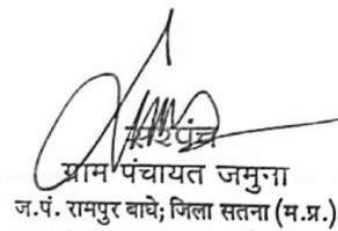 सरपंच
ग्राम पंचायत जमुना
ज.पं. रामपुर बाघे; जिला सतना (म.प्र.)